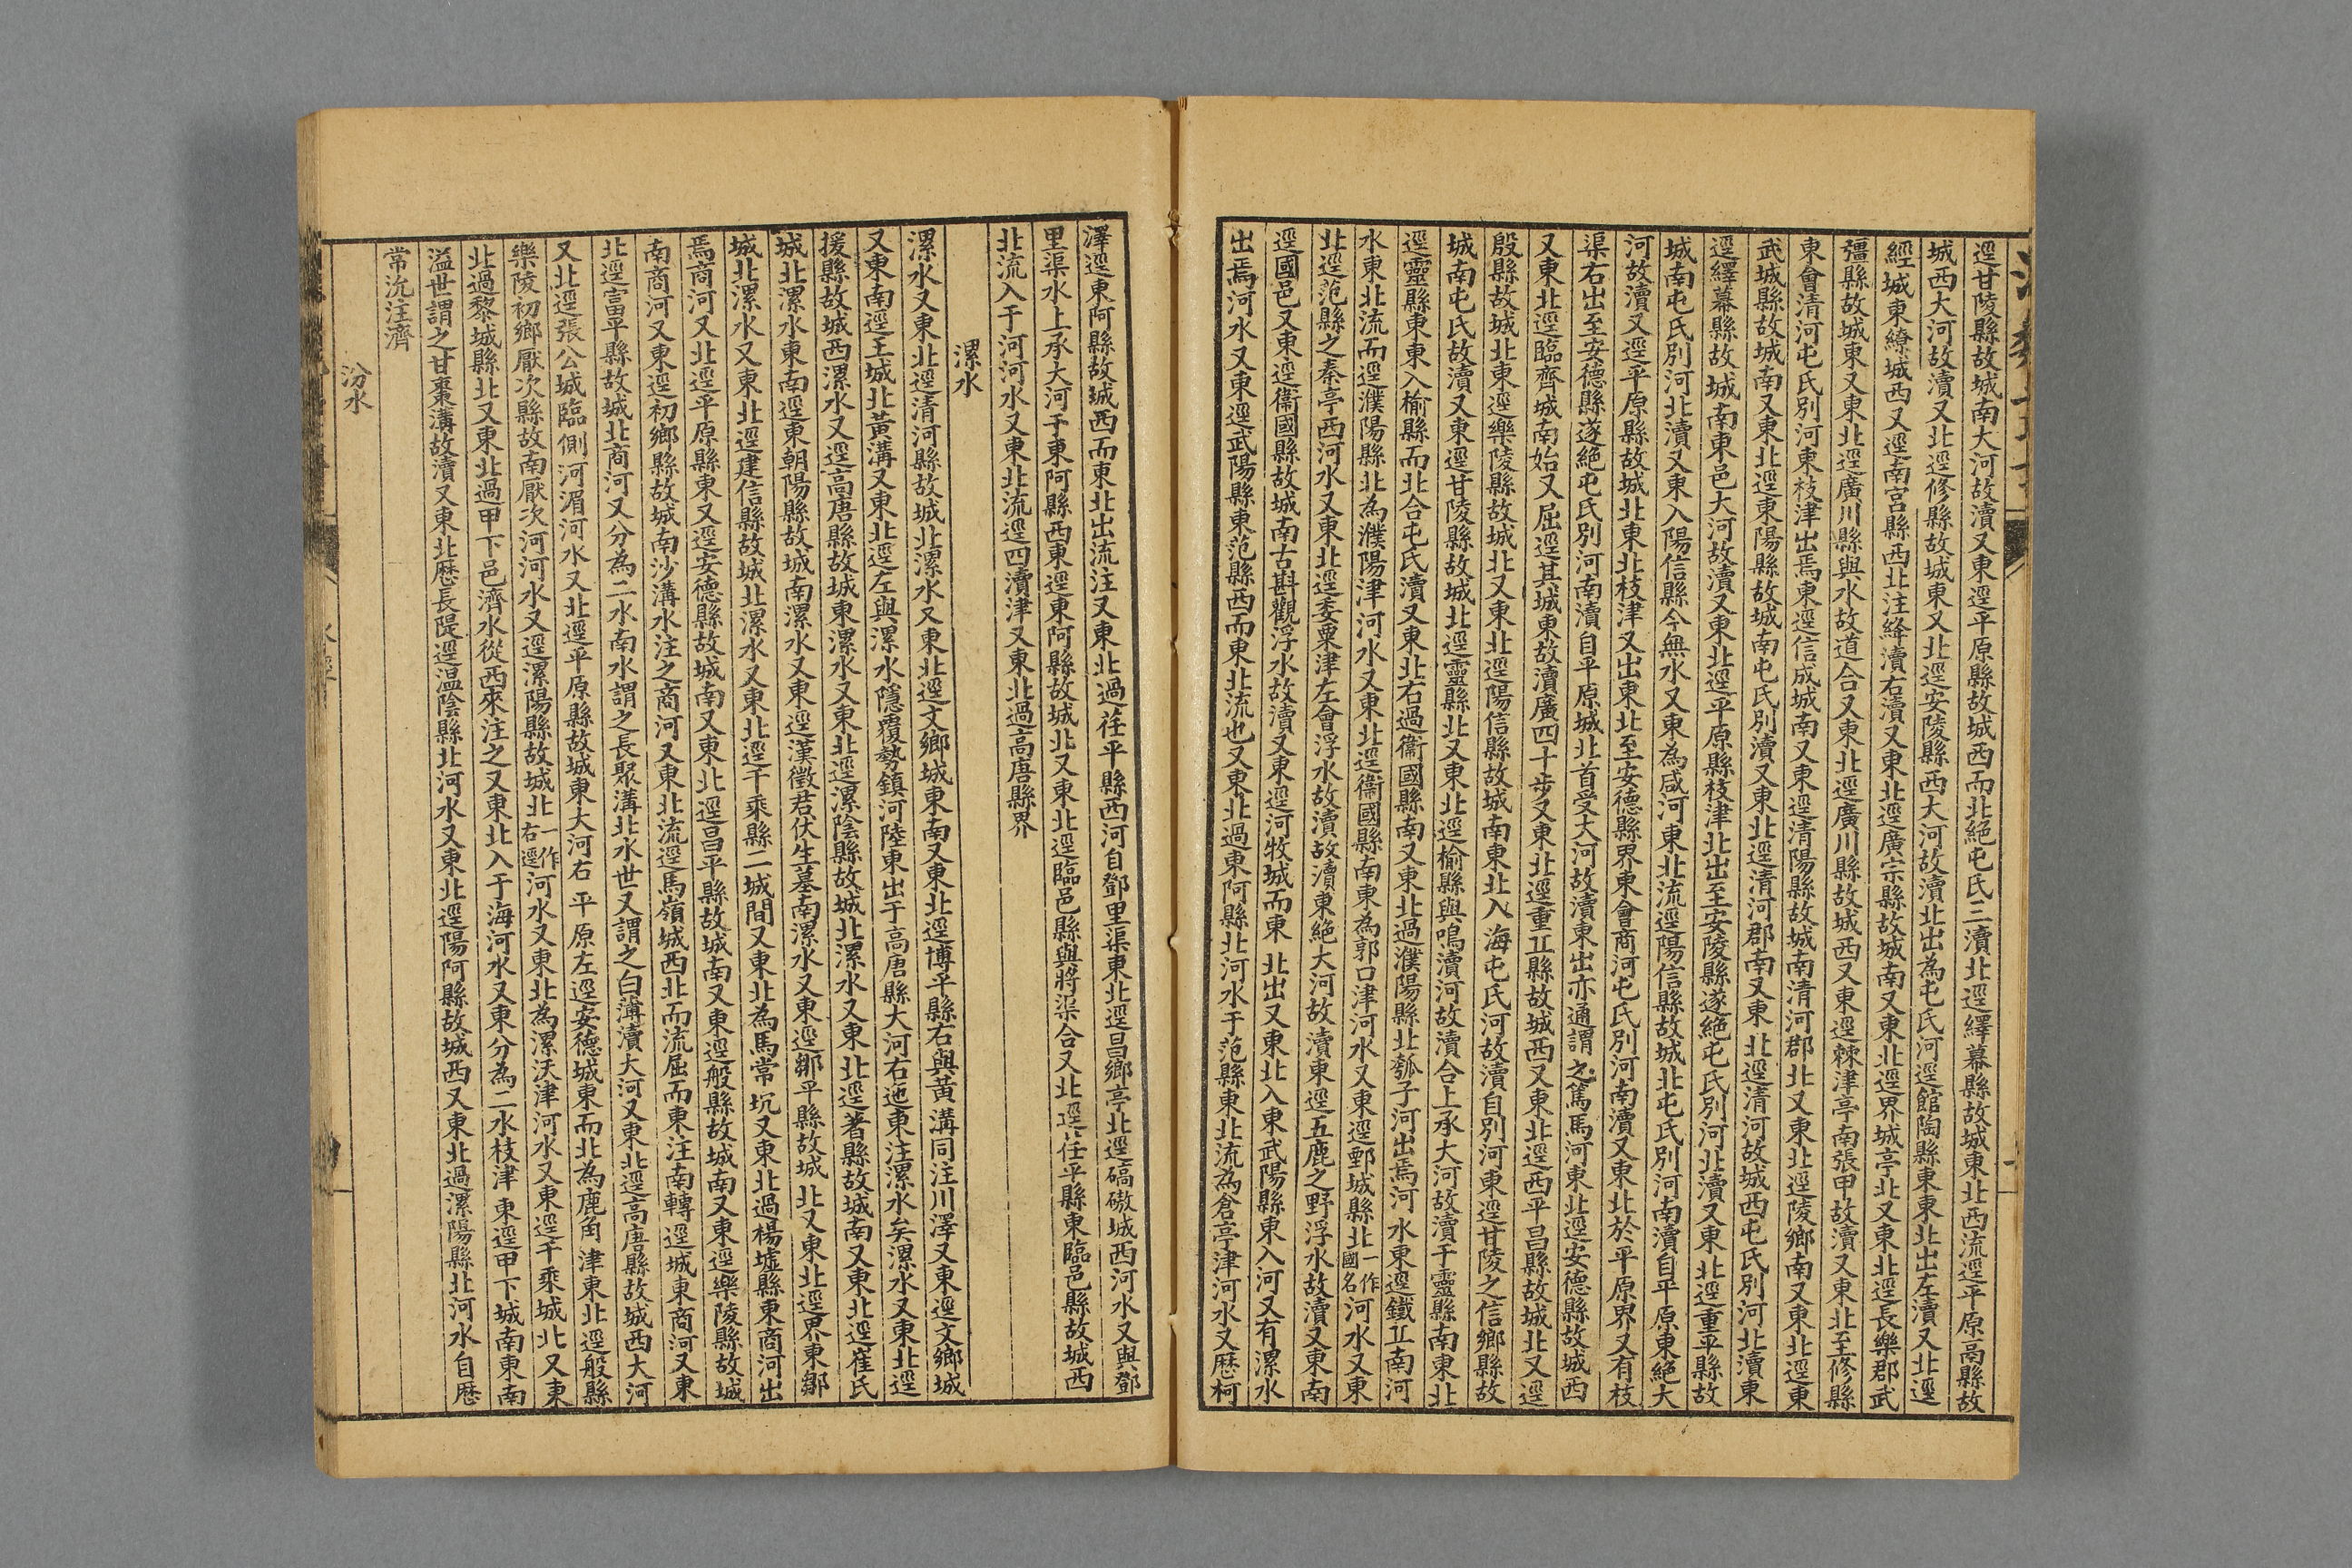 逕甘陵縣故城南大河故瀆又東逕平原縣故城西而北絕屯氏三瀆北逕繹幕縣故城東北西流逕平原鬲縣故
城西大河故瀆又北逕修縣故城東又北逕安陵縣西大河故瀆北出為屯氏河逕館陶縣東東北出左瀆又北逕
經城東繚城西又逕南宮縣西北注絳瀆右瀆又東北逕廣宗縣故城南又東北逕界城亭北又東北逕長樂郡武
彊縣故城東又東北逕廣川縣與水故道合又東北逕廣川縣故城西又東逕棘津亭南張甲故瀆又東北至修縣
東會清河屯氏別河東枝津出焉東逕信成城南又東逕清陽縣故城南清河郡北又東北逕陵鄉南又東北逕東
武城縣故城南又東北逕東陽縣故城南屯氏別瀆又東北逕清河郡南又東北逕清河故城西屯氏別河北瀆東
逕繹幕縣故城南東邑大河故瀆又東北逕平原縣枝津北出至安陵縣遂絕屯氏別河北瀆又東北逕重平縣故
城南屯氏別河北瀆又東入陽信縣今無水又東為咸河東北流逕陽信縣故城北屯氏別河南瀆自平原東絕大
河故瀆又逕平原縣故城北東北枝津又出東北至安德縣界東會商河屯氏別河南瀆又東北於平原界又有枝
渠右出至安德縣遂絕屯氏別河南瀆自平原城北首受大河故瀆東出亦通謂之篤馬河東北逕安德縣故城西
又東北逕臨齊城南始又屈逕其城東故瀆廣四十步又東北逕重丘縣故城西又東北逕西平昌縣故城北又逕
殷縣故城北東逕樂陵縣故城北又東北逕陽信縣故城南東北入海屯氏河故瀆自別河東逕甘陵之信鄉縣故
城南屯氏故瀆又東逕甘陵縣故城北逕靈縣北又東北逕榆縣與鳴瀆河故瀆合上承大河故瀆于靈縣南東北
逕靈縣東東入榆縣而北合屯氏瀆又東北右過衞國縣南又東北過濮陽縣北瓠子河出焉河水東逕鐵丘南河
水東北流而逕濮陽縣北為濮陽津河水又東北逕衞國縣南東為郭口津河水又東逕鄄城縣北一作國名河水又東
北逕范縣之秦亭西河水又東北逕委粟津左會浮水故瀆故瀆東絕大河故瀆東逕五鹿之野浮水故瀆又東南
逕國邑又東逕衞國縣故城南古斟觀浮水故瀆又東逕河牧城而東北出又東北入東武陽縣東入河又有漯水
出焉河水又東逕武陽縣東范縣西而東北流也又東北過東阿縣北河水于范縣東北流為倉亭津河水又歷柯
澤逕東阿縣故城西而東北出流注又東北過茌平縣西河自鄧里渠東北逕昌鄉亭北逕碻磝城西河水又與鄧
里渠水上承大河于東阿縣西東逕東阿縣故城北又東北逕臨邑縣與將渠合又北逕茌平縣東臨邑縣故城西
北流入于河河水又東北流逕四瀆津又東北過高唐縣界
漯水
漯水又東北逕清河縣故城北漯水又東北逕文鄉城東南又東北逕博平縣右與黃溝同注川澤又東逕文鄉城
又東南逕王城北黃溝又東北逕左與漯水隱覆勢鎮河陸東出于高唐縣大河右迆東注漯水矣漯水又東北逕
援縣故城西漯水又逕高唐縣故城東漯水又東北逕漯陰縣故城北漯水又東北逕著縣故城南又東北逕崔氏
城北漯水東南逕東朝陽縣故城南漯水又東逕漢徵君伏生墓南漯水又東逕鄒平縣故城北又東北逕界東鄒
城北漯水又東北逕建信縣故城北漯水又東北逕千乘縣二城間又東北為馬常坑又東北過楊墟縣東商河出
焉商河又北逕平原縣東又逕安德縣故城南又東北逕昌平縣故城南又東逕般縣故城南又東逕樂陵縣故城
南商河又東逕初鄉縣故城南沙溝水注之商河又東北流逕馬嶺城西北而流屈而東注南轉逕城東商河又東
北逕富平縣故城北商河又分為二水南水謂之長聚溝北水世又謂之白薄瀆大河又東北逕高唐縣故城西大河
又北逕張公城臨側河湄河水又北逕平原縣故城東大河右平原左逕安德城東而北為鹿角津東北逕般縣
樂陵初鄉厭次縣故南厭次河河水又逕漯陽縣故城北一作右逕河水又東北為漯沃津河水又東逕千乘城北又東
北過黎城縣北又東北過甲下邑濟水從西來注之又東北入于海河水又東分為二水枝津東逕甲下城南東南
溢世謂之甘棗溝故瀆又東北歷長隄逕溫陰縣北河水又東北逕陽阿縣故城西又東北過漯陽縣北河水自歷
常沇注濟
汾水